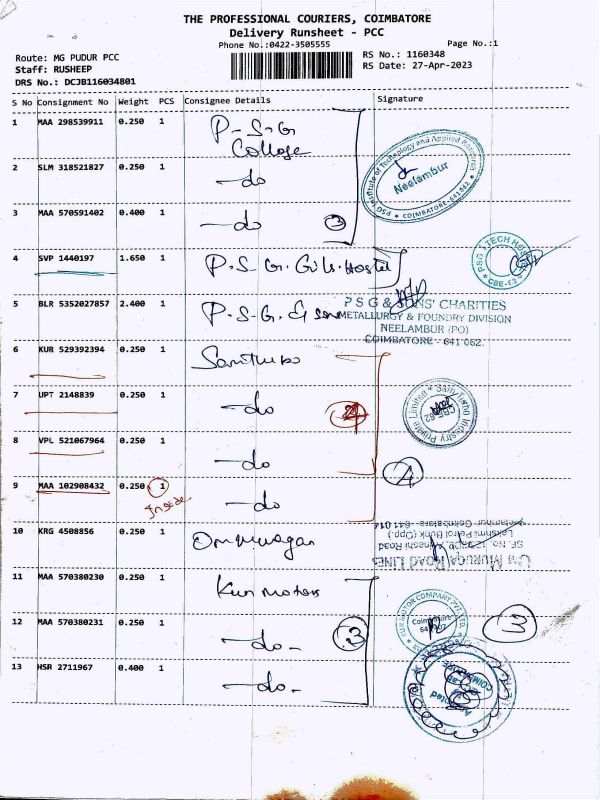 THE PROFESSIONAL COURIERS, COIMBATORE
Delivery Runsheet - PCC
Phone No.:0422-3505555
Page No.:1
Route: MG PUDUR PCC
Staff: RUSHEEP
DRS No.: DCJB116034801
RS No.: 1160348
RS Date: 27-Apr-2023
S No Consignment No Weight PCS Consignee Details Signature
1 MAA 298539911 0.250 1 P-S-G
College
PSG Institute of Technology and Applied Research
Neelambur
COIMBATORE-641 062
2 SLM 318521827 0.250 1 -do
3 MAA 570591402 0.400 1 -do 3
4 SVP 1440197 1.650 1 P.S.G. Girls. Hostel
5 BLR 5352027857 2.400 1 P-S-G. & sons
PSG & SONS' CHARITIES
METALLURGY & FOUNDRY DIVISION
NEELAMBUR (PO)
COIMBATORE - 641 062.
6 KUR 529392394 0.250 1
7 UPT 2148839 0.250 1 -do
8 VPL 521067964 0.250 1 -do
4
9 MAA 102908432 0.250 1 -do
Inside
10 KRG 4508856 0.250 1 Om murugan
OM MURUGA ROAD LINES
Lakshmi Petrol Bunk (Opp.)
11 MAA 570380230 0.250 1 Kun motors
KUN MOTOR COMPANY PVT LTD
Coimbatore
12 MAA 570380231 0.250 1 -do- 3
3
13 HSR 2711967 0.400 1 -do-